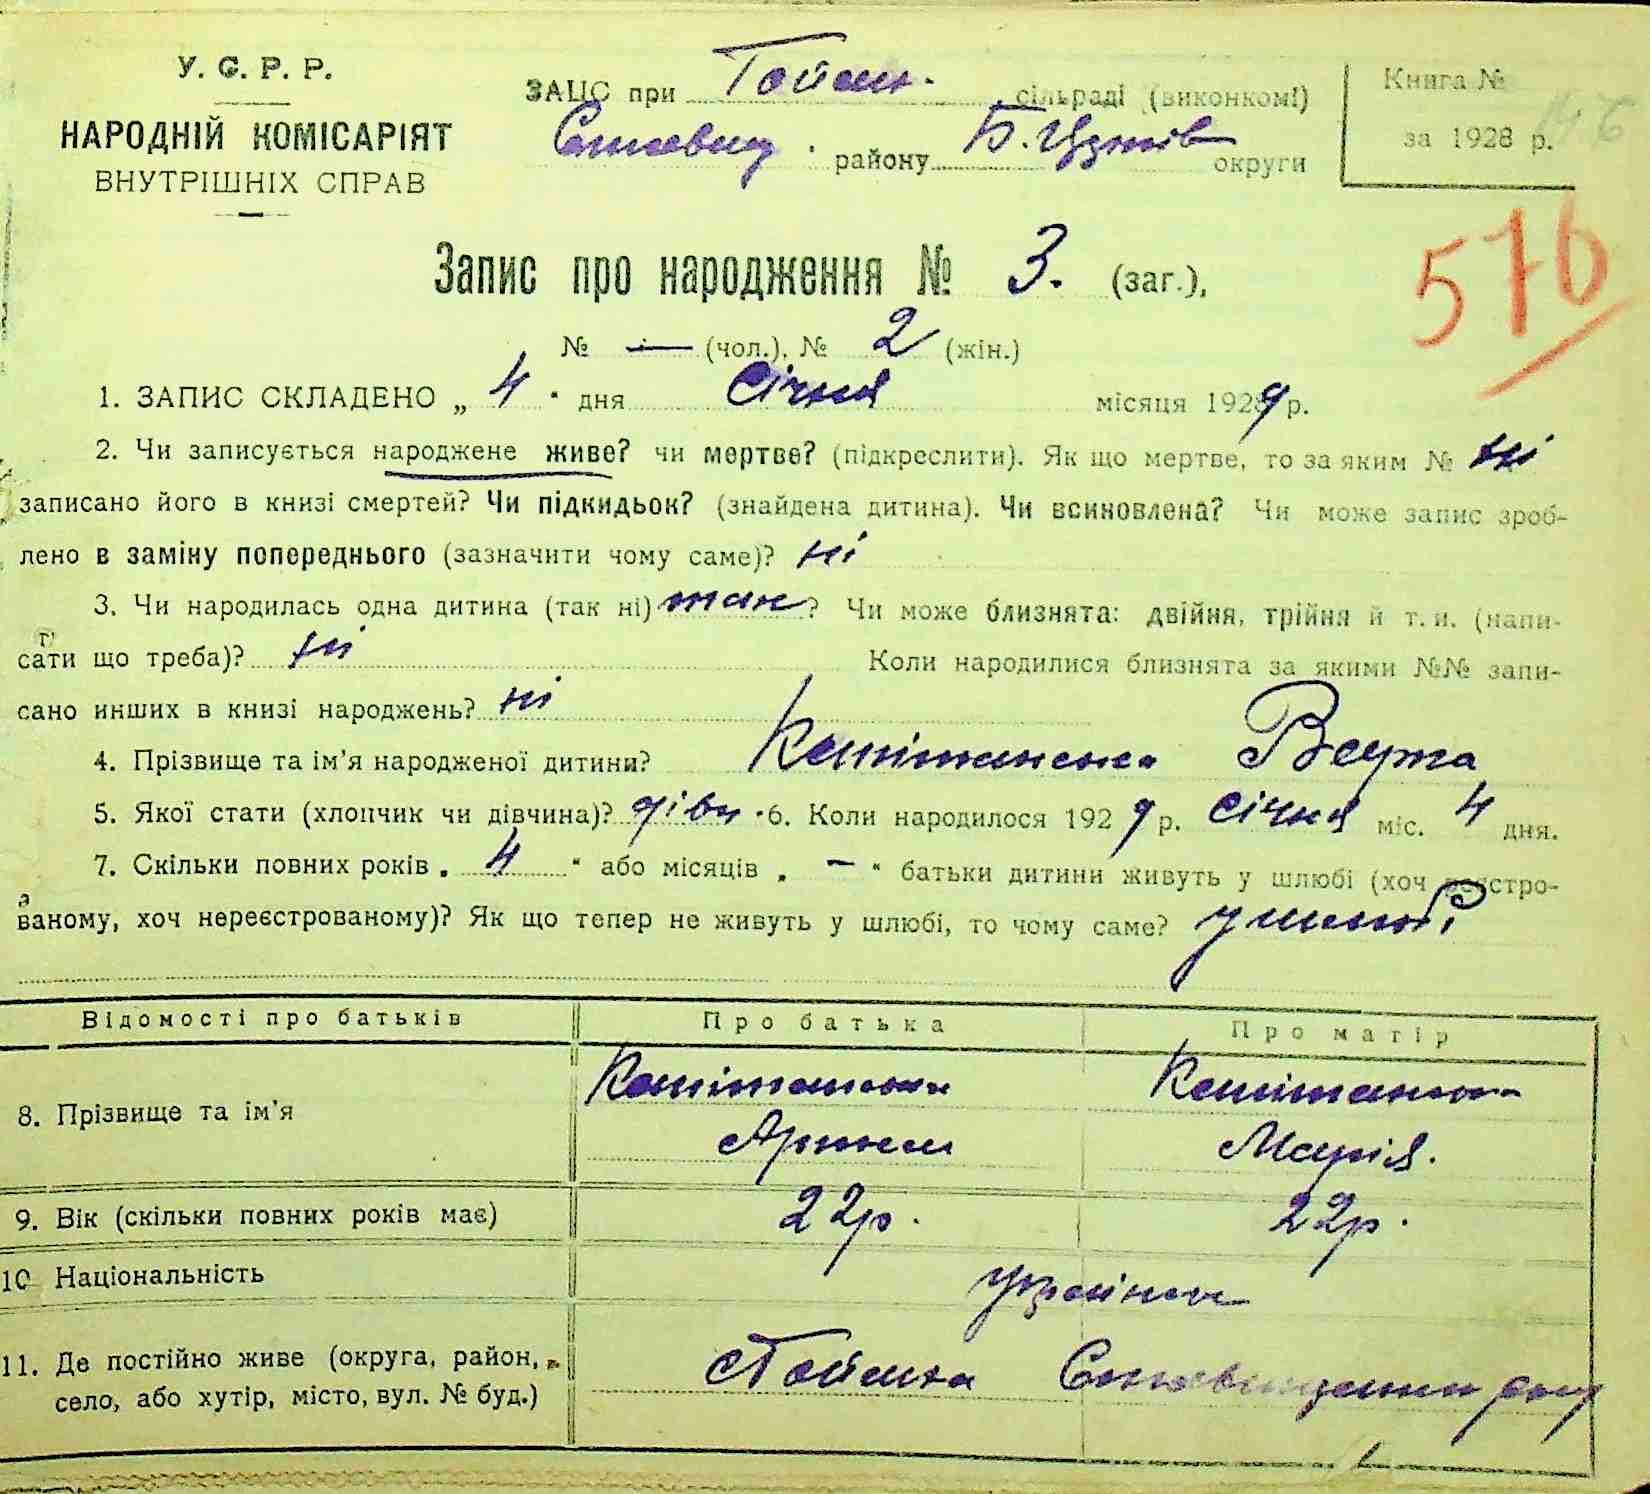 У. С. Р. Р.
НАРОДНІЙ КОМІСАРІЯТ
ВНУТРІШНІХ СПРАВ
ЗАЦС при сільраді (виконкомі)
району Б. Церків округи
Книга № 146
за 1928 р.
576
Запис про народження № 3. (заг.),
№ — (чол.), № 2 (жін.)
1. ЗАПИС СКЛАДЕНО „ 4 " дня січня місяця 1929 р.
2. Чи записується народжене живе? чи мертве? (підкреслити). Як що мертве, то за яким № ні
записано його в книзі смертей? Чи підкидьок? (знайдена дитина). Чи всиновлена? Чи може запис зроб-
лено в заміну попереднього (зазначити чому саме)? ні
3. Чи народилась одна дитина (так ні) так ? Чи може близнята: двійня, трійня й т. и. (напи-
сати що треба)? ні Коли народилися близнята за якими №№ запи-
сано инших в книзі народжень? ні
4. Прізвище та ім'я народженої дитини?
5. Якої стати (хлопчик чи дівчина)? дівч. 6. Коли народилося 1929 р. січня міс. 4 дня.
7. Скільки повних років „ 4 " або місяців „ — " батьки дитини живуть у шлюбі (хоч реєстро-
ваному, хоч нереєстрованому)? Як що тепер не живуть у шлюбі, то чому саме? у шлюбі
Відомості про батьків Про батька Про матір
8. Прізвище та ім'я
Марія.
9. Вік (скільки повних років має) 22р. 22р.
10 Національність
11. Де постійно живе (округа, район,
село, або хутір, місто, вул. № буд.)